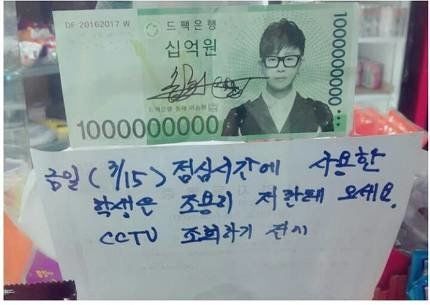 DF 20162017 W
드팩은행
십억원
1000000000
1000000000
금일 (7/15) 점심시간에 사용한
학생은 조용히 저한테 오세요.
CCTV 조회하기 전에